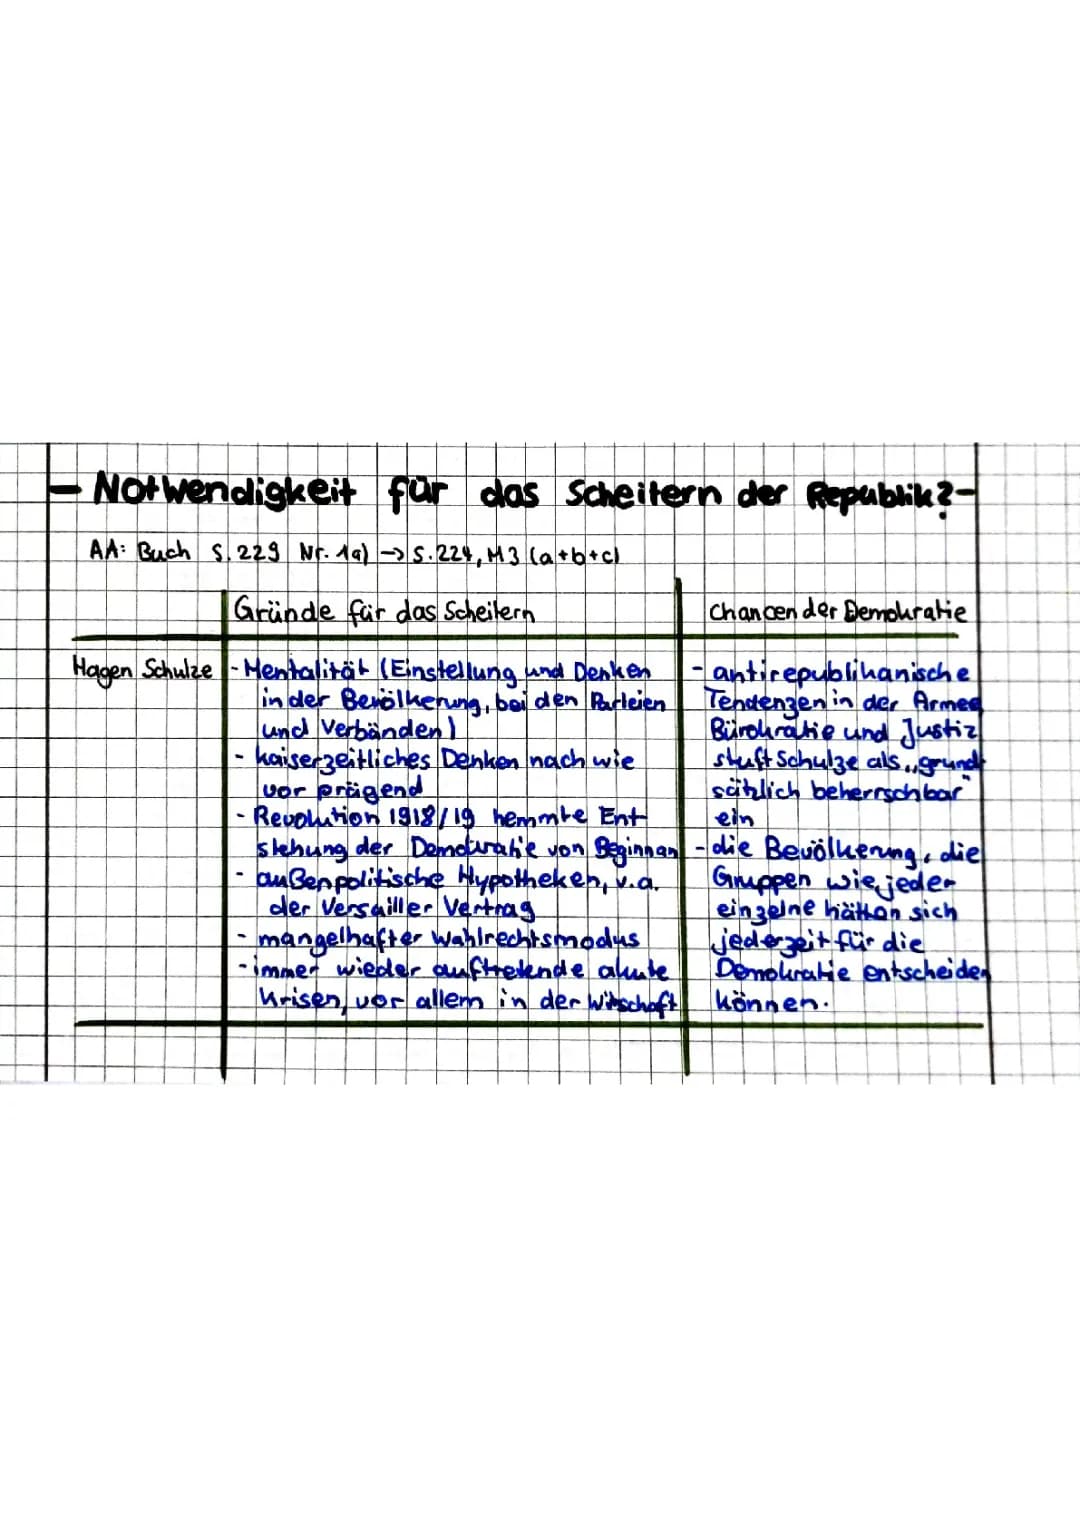 - Notwendigkeit für das Scheitern der Republik? -
AA: Buch S. 229 Nr. 1a) → S. 224, M3 (a+b+c)
Gründe für das Scheitern
Chancen der Demokratie
Hagen Schulze
- Mentalität (Einstellung und Denken
in der Bevölkerung, bei den Parteien
und Verbänden)
- kaiserzeitliches Denken nach wie
vor prägend
- Revolution 1918/19 hemmte Ent
stehung der Demokratie von Beginn an
- außenpolitische Hypotheken, v.a.
der Versailler Vertrag
- mangelhafter Wahlrechtsmodus
- immer wieder auftretende akute
Krisen, vor allem in der Witschaft
- antirepublikanische
Tendenzen in der Armee
Bürokratie und Justiz
stuft Schulze als „grund
sätzlich beherrschbar"
ein
- die Bevölkerung, die
Gruppen wie jeder
einzelne hätten sich
jederzeit für die
Demokratie entscheiden
können.